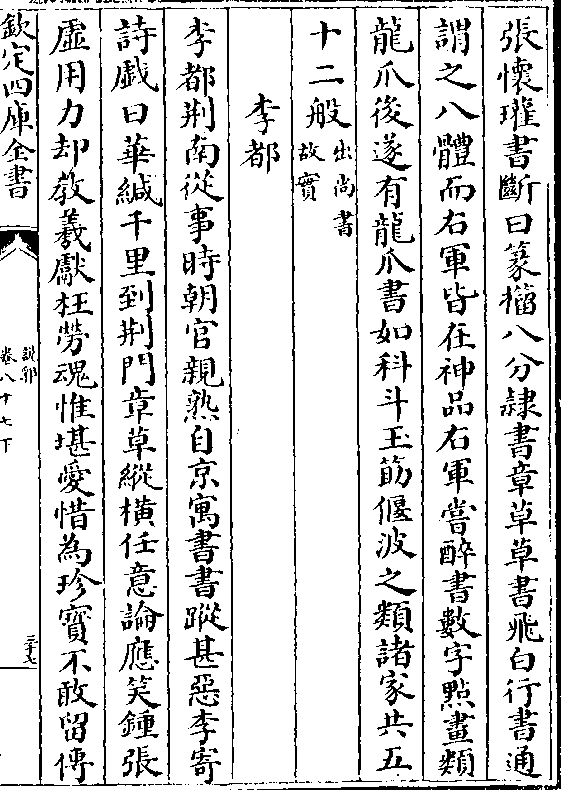 張懷瓘書斷曰篆籀八分隸書章草草書飛白行書通
謂之八體而右軍皆在神品右軍嘗醉書數字點畫類
龍爪後遂有龍爪書如科斗玉筯偃波之類諸家共五
十二般出尚書故實
李都
李都荆南從事時朝官親熟自京寓書書蹤甚惡李寄
詩戲曰華緘千里到荆門章草縱橫任意論應笑鍾張
虛用力却教羲獻枉勞魂惟堪愛惜為珍寶不敢留傳
欽定四庫全書
説郛
卷八十七下
三十七